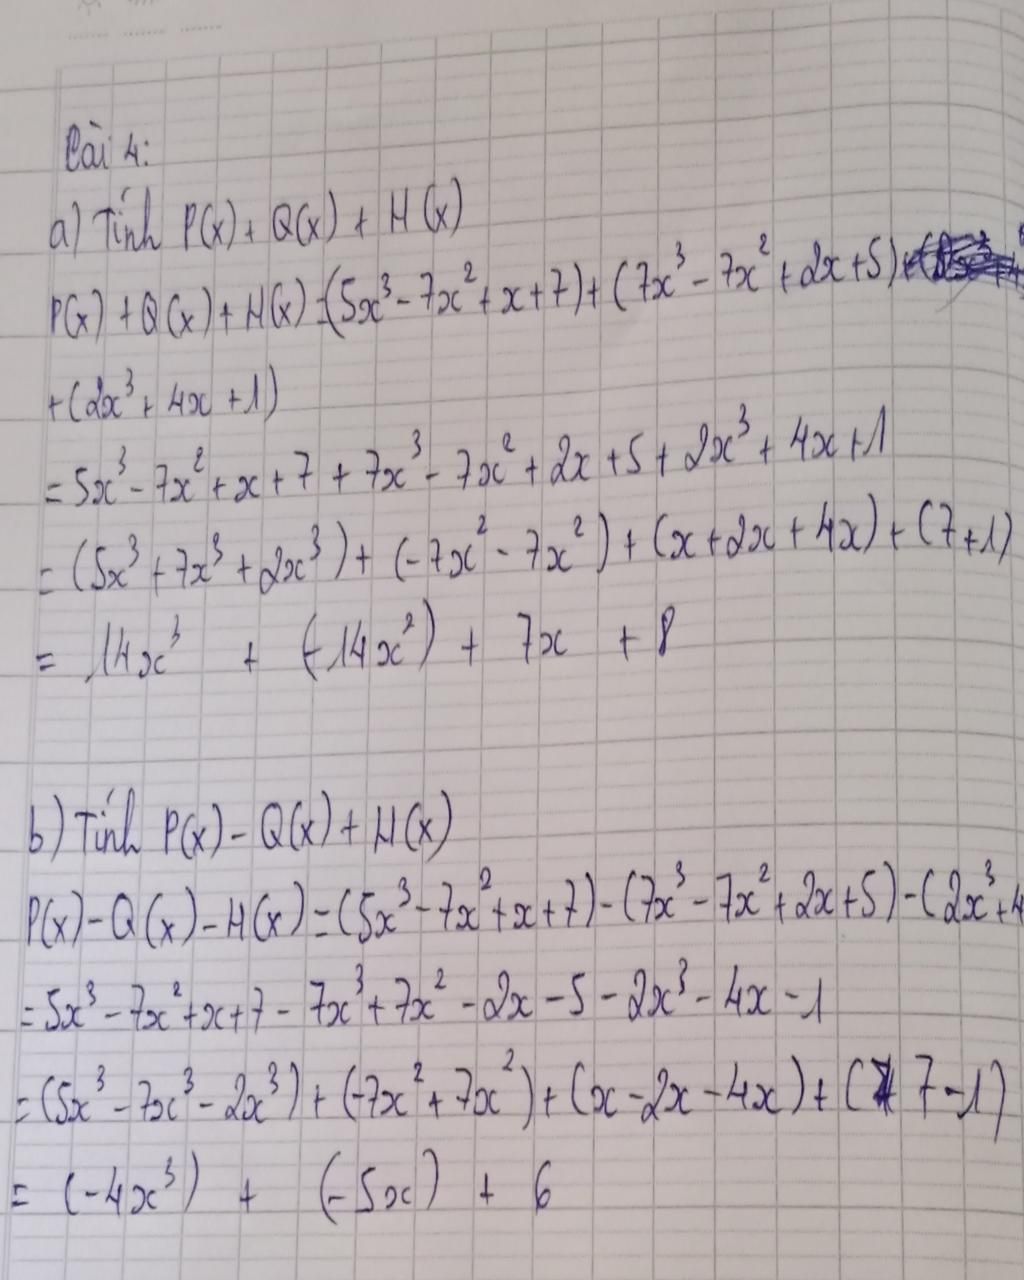 Bài 4:
a) Tính P(x) + Q(x) + H(x)
P(x) + Q(x) + H(x) = (5x³ - 7x² + x + 7) + (7x³ - 7x² + 2x + 5)
+ (2x³ + 4x + 1)
= 5x³ - 7x² + x + 7 + 7x³ - 7x² + 2x + 5 + 2x³ + 4x + 1
= (5x³ + 7x³ + 2x³) + (-7x² - 7x²) + (x + 2x + 4x) + (7 + 1)
= 14x³ + (-14x²) + 7x + 8
b) Tính P(x) - Q(x) + H(x)
P(x) - Q(x) - H(x) = (5x³ - 7x² + x + 7) - (7x³ - 7x² + 2x + 5) - (2x³ + 4
= 5x³ - 7x² + x + 7 - 7x³ + 7x² - 2x - 5 - 2x³ - 4x - 1
= (5x³ - 7x³ - 2x³) + (-7x² + 7x²) + (x - 2x - 4x) + (7 - 1)
= (-4x³) + (-5x) + 6